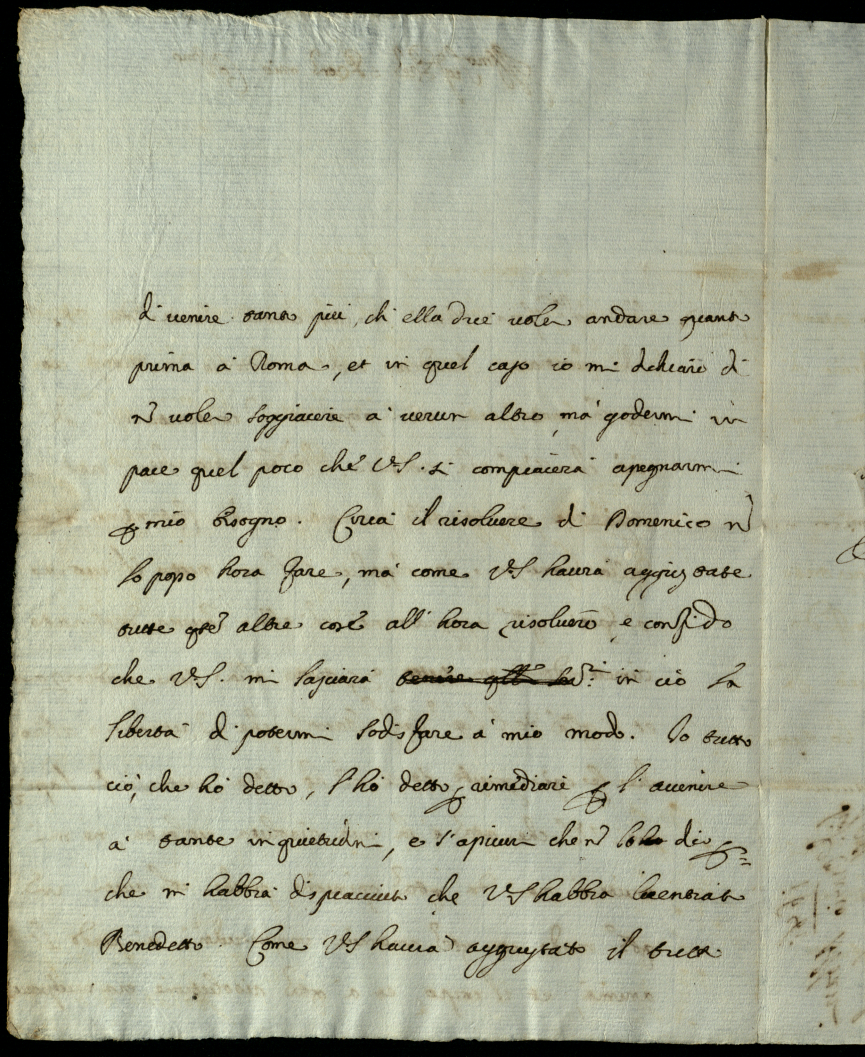 di venire tanto più, ch ella dice voler andare quanto
prima à Roma, et in quel caso io mi dichiaro di
nō voler soggiacere à verun altro, mà godermi in
pace quel poco che VS. si compiacerà
mio bisogno. Circa il risolvere di Domenico nō
lo posso hora fare, mà come VS haurà aggiustate
tutte qste altre cose all' hora risolverò, e confido
che VS. mi lasciarà in ciò la
libertà di potermi sodisfare à mio modo. Io tutto
ciò, che hò detto, l'hò detto p rimediare p l'avenire
à tante inquietudini, e s'apicuri che nō lo dico p=
che mi habbia dispiaciuto che VS habbia licentiato
Benedetto Come VS haurà aggiustato il tutto